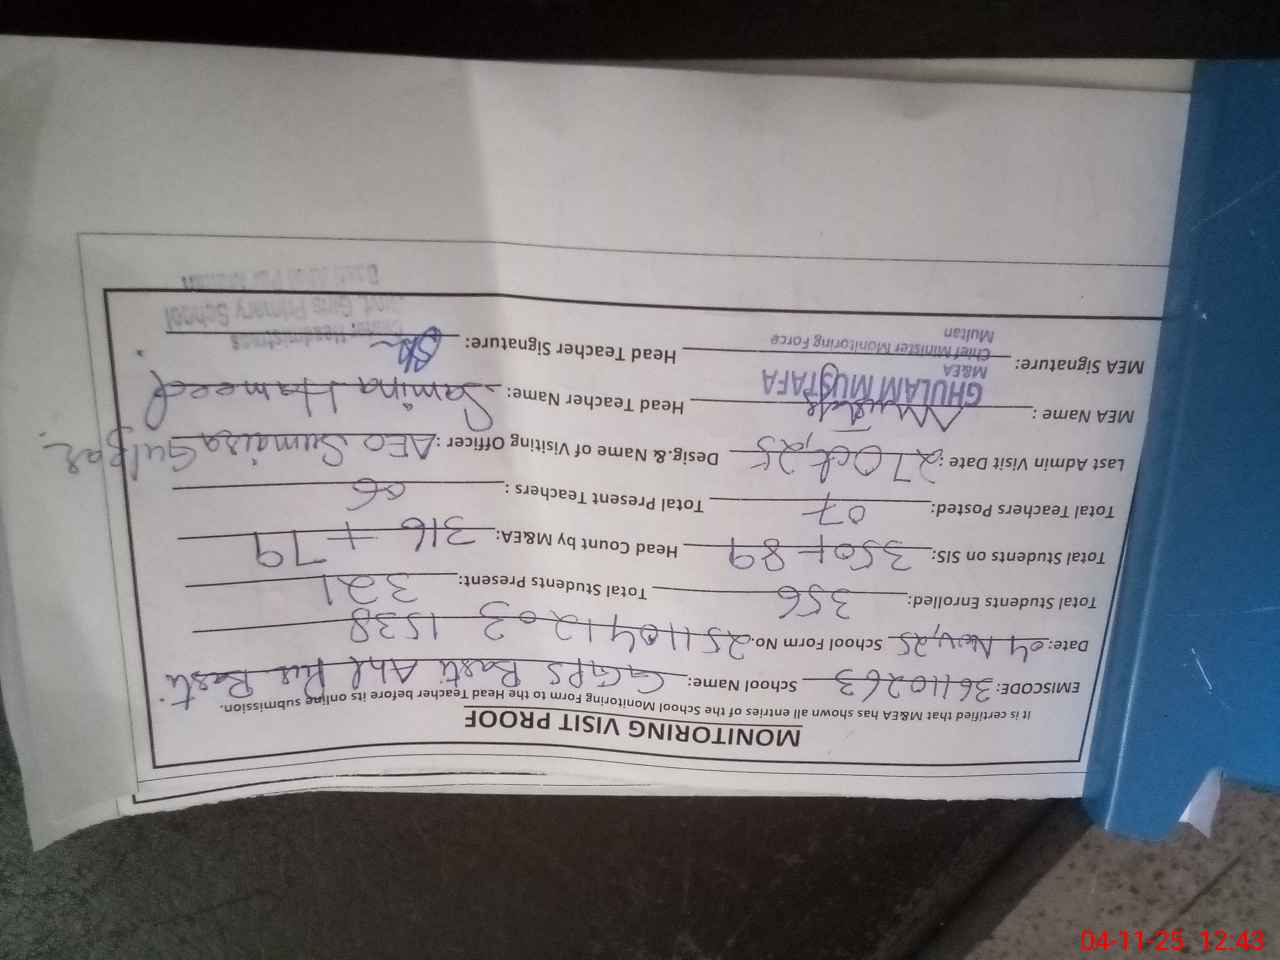 MONITORING VISIT PROOF
It is certified that M&EA has shown all entries of the School Monitoring Form to the Head Teacher before its online submission.
EMISCODE: 36110263 School Name: GGPS Basti Ahl Pur Basti
Date: 04 Nov, 25 School Form No. 251104 1203 1538
Total Students Enrolled: 356 Total Students Present: 321
Total Students on SIS: 350+89 Head Count by M&EA: 316 + 79
Total Teachers Posted: 07 Total Present Teachers : 06
Last Admin Visit Date : 27 Oct, 25 Desig.& Name of Visiting Officer : AEO Sumaira Gulzar
MEA Name : Head Teacher Name: Samina Hameed
GHULAM MUSTAFA
M&EA
MEA Signature: Head Teacher Signature:
Chief Minister Monitoring Force
Multan
Headmistress
Govt. Girls Primary School
04-11-25 12:43